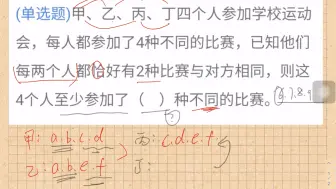 (单选题)甲、乙、丙、丁四个人参加学校运动
会，每人都参加了4种不同的比赛，已知他们
每两个人都恰好有2种比赛与对方相同，则这
4个人至少参加了（ ）种不同的比赛。6.7.8.9
?
甲: a.b.c.d 丙: c.d.e.f
乙: a.b.e f 丁: